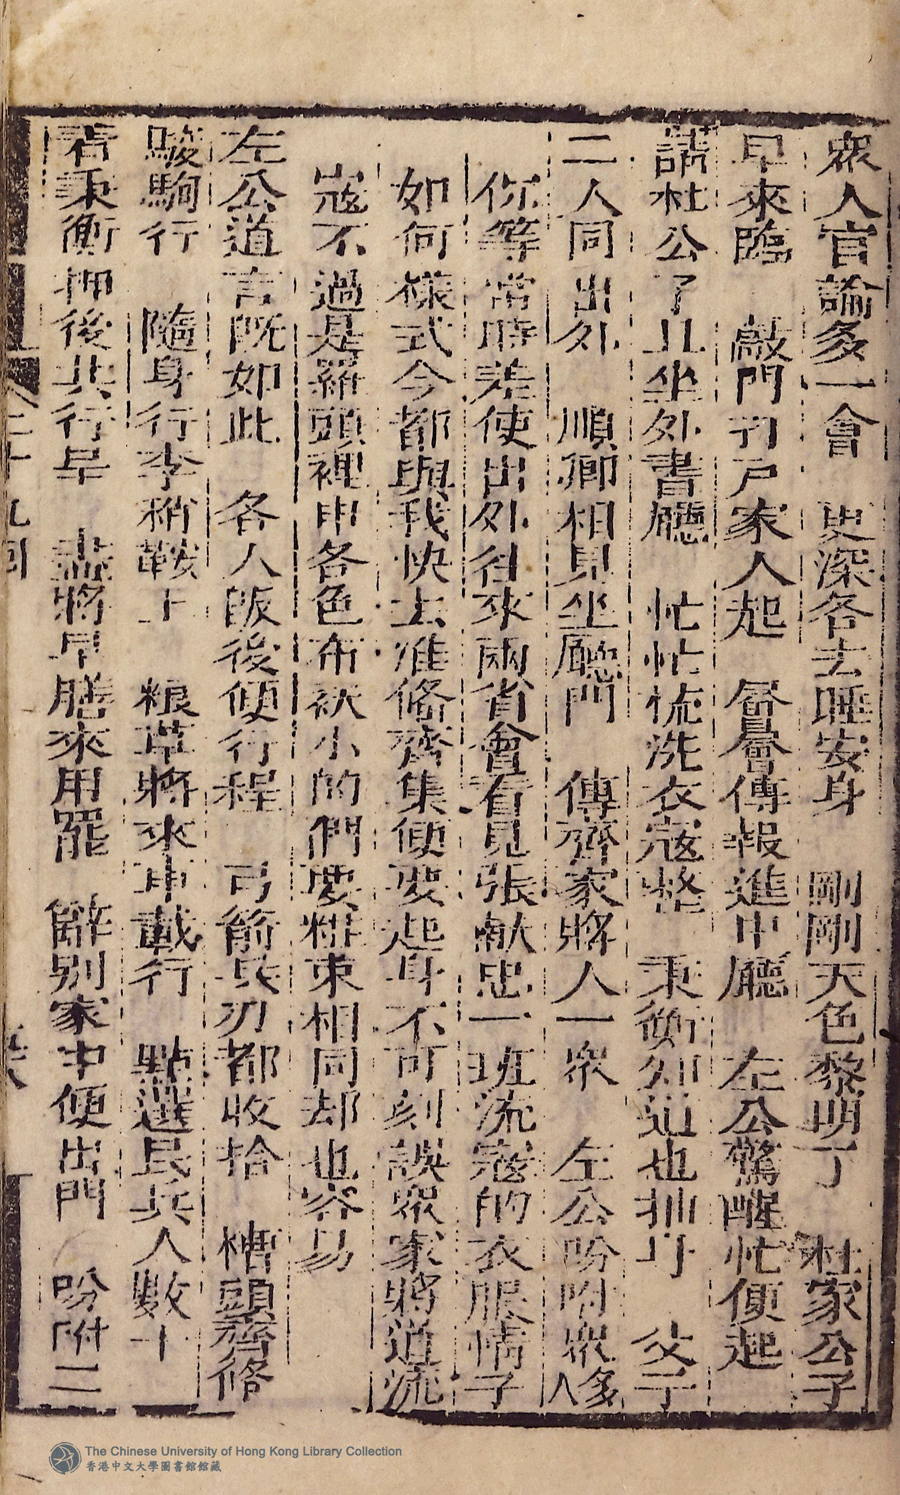 衆人官論多一會　史深各去睡安身　剛剛天色黎明了　杜家公子
早來臨　敲門刁戶家人起　層層傳報進中廳　左公驚醒忙便起
請杜公了且坐外書廳　忙忙梳洗衣寇整　秉衡知道也抽身　父子
二人同出外　順卿相見坐廳門　傳齊家將人一衆　左公吩咐衆多人
你等當時差使出外往來兩省會看見張献忠一班流寇的衣服情子
如何樣式今都與我快去准俻齊集便要起身不可刻誤衆家將道流
寇不過是羅頭裡巾各色布袄小的們要粧束相同却也容易
左公道言既如此　各人飯後便行程　弓箭兵刃都收拾　槽頭齊俻
駿駒行　隨身行李稍鞍上　粮草將來車載行　點選民兵人數十
君秉衡押後共行早　盡將早膳來用罷　辭别家中便出門　吩咐二
二十九囬
The Chinese University of Hong Kong Library Collection
香港中文大學圖書館館藏